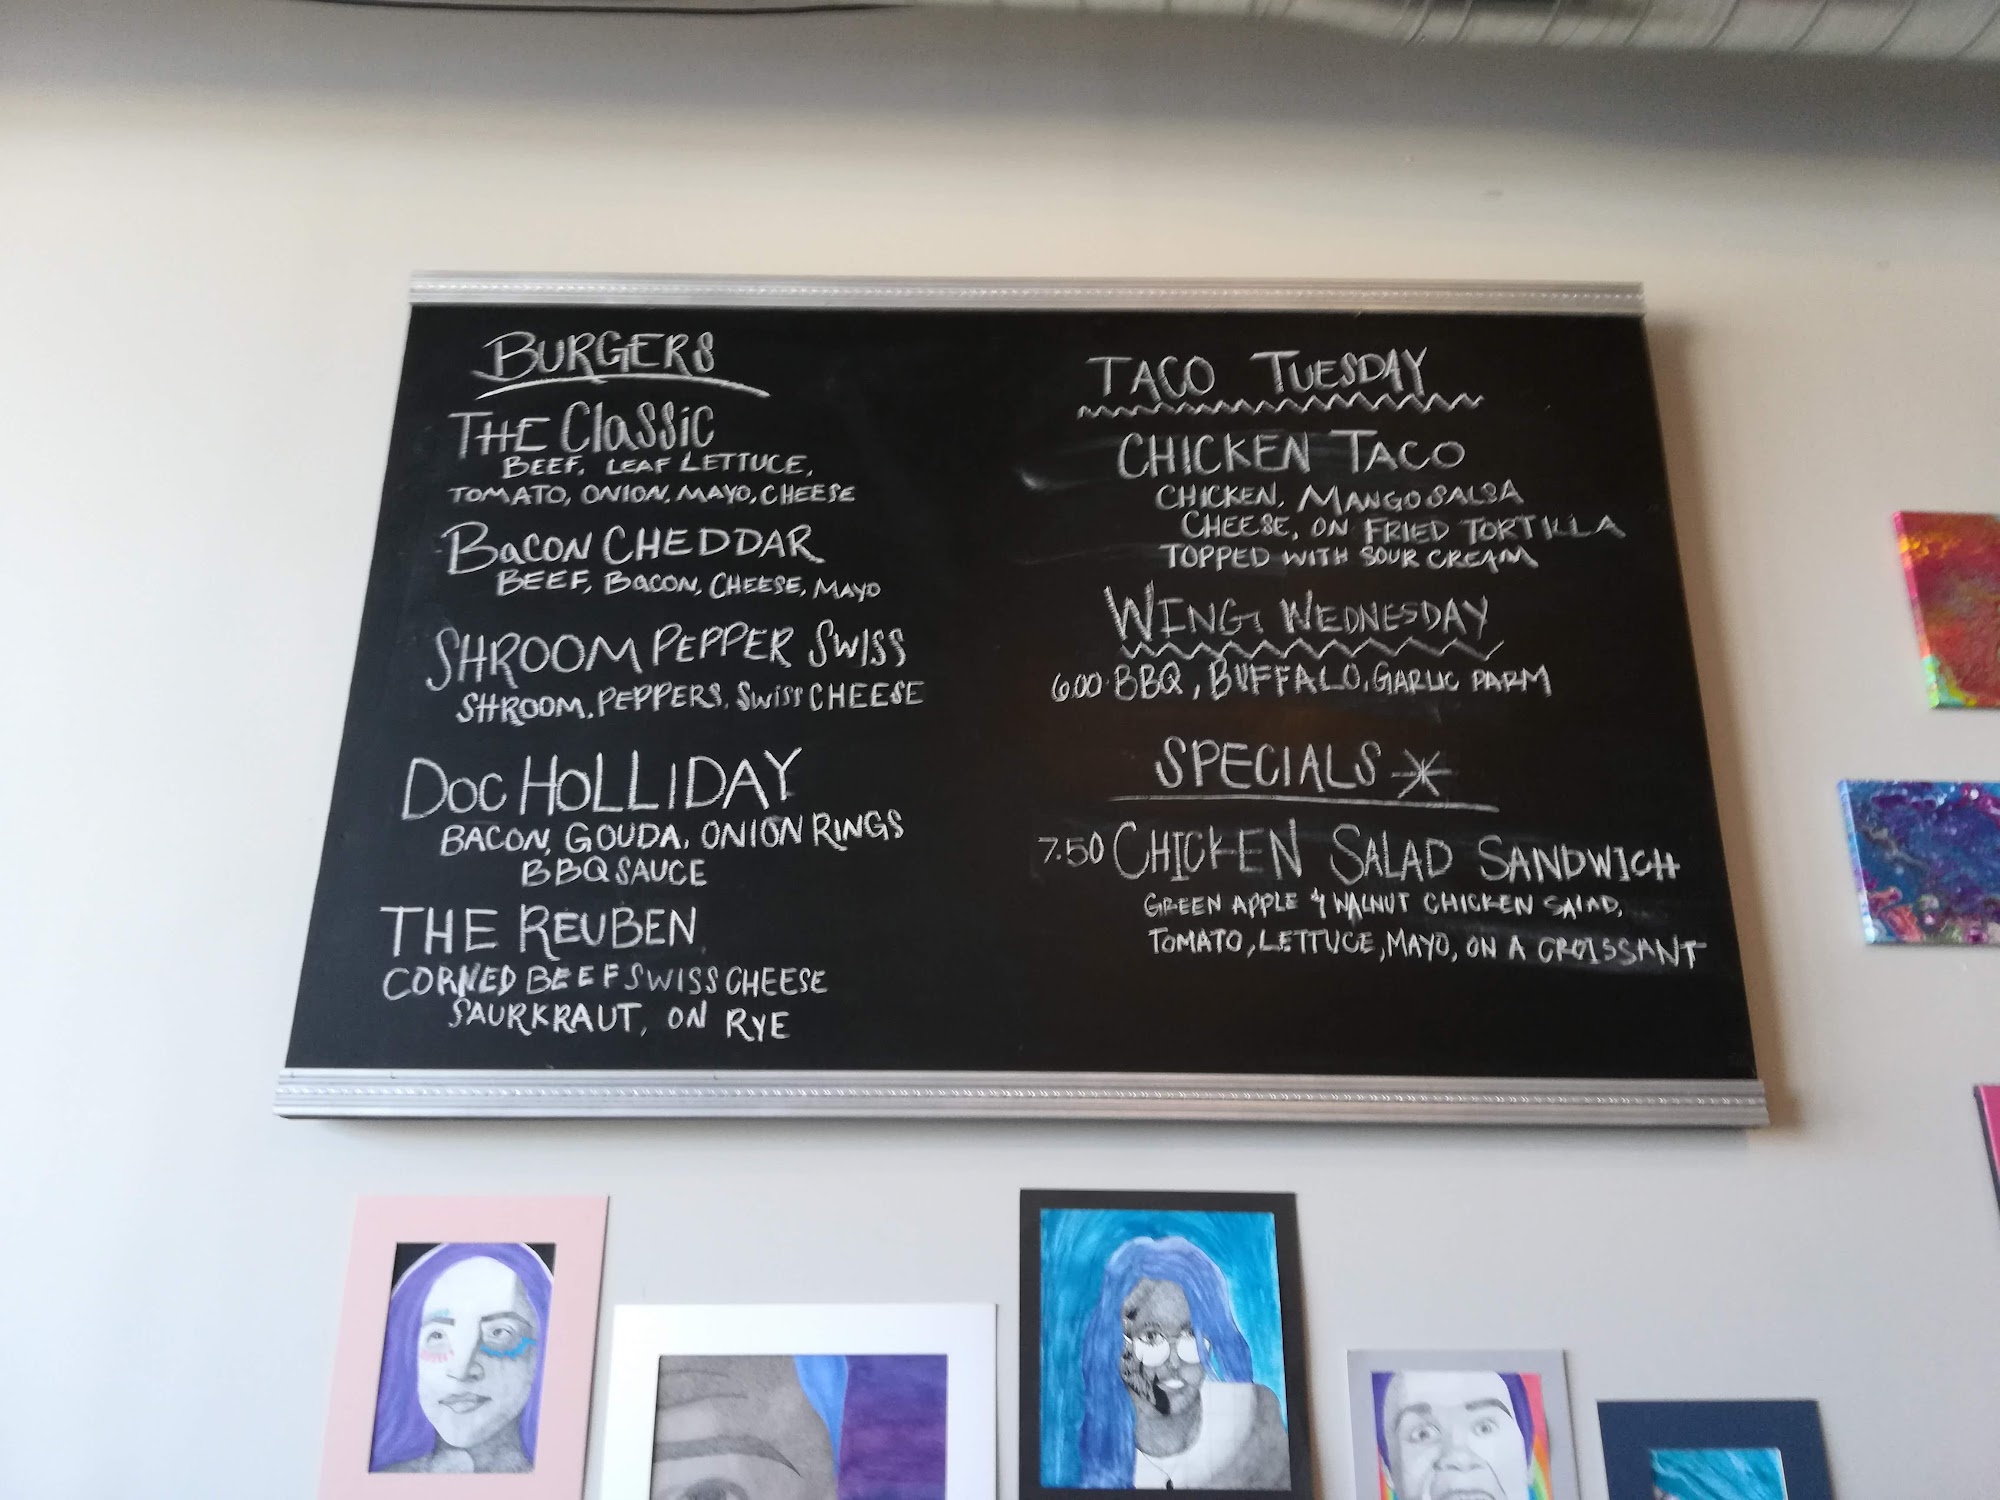 BURGERS
THE Classic
BEEF, LEAF LETTUCE,
TOMATO, ONION, MAYO, CHEESE
BaCON CHEDDAR
BEEF, BaCON, CHEESE, MAYO
SHROOM PEPPER SWISS
SHROOM, PEPPERS, SWiSS CHEESE
DOC HOLLIDAY
BACON, GOUDA, ONION RINGS
BBQ SAUCE
THE REUBEN
CORNED BEEF SWISS CHEESE
SAURKRAUT, ON RYE
TACO TUESDAY
CHICKEN TACO
CHICKEN, MANGO SALSA
CHEESE, ON FRIED TORTILLA
TOPPED WITH SOUR CREAM
WING WEDNESDAY
6.00 BBQ, BUFFALO, GARLIC PARM
SPECIALS *
7.50 CHICKEN SALAD SANDWICH
GREEN APPLE & WALNUT CHICKEN SALAD,
TOMATO, LETTUCE, MAYO, ON A CROISSANT